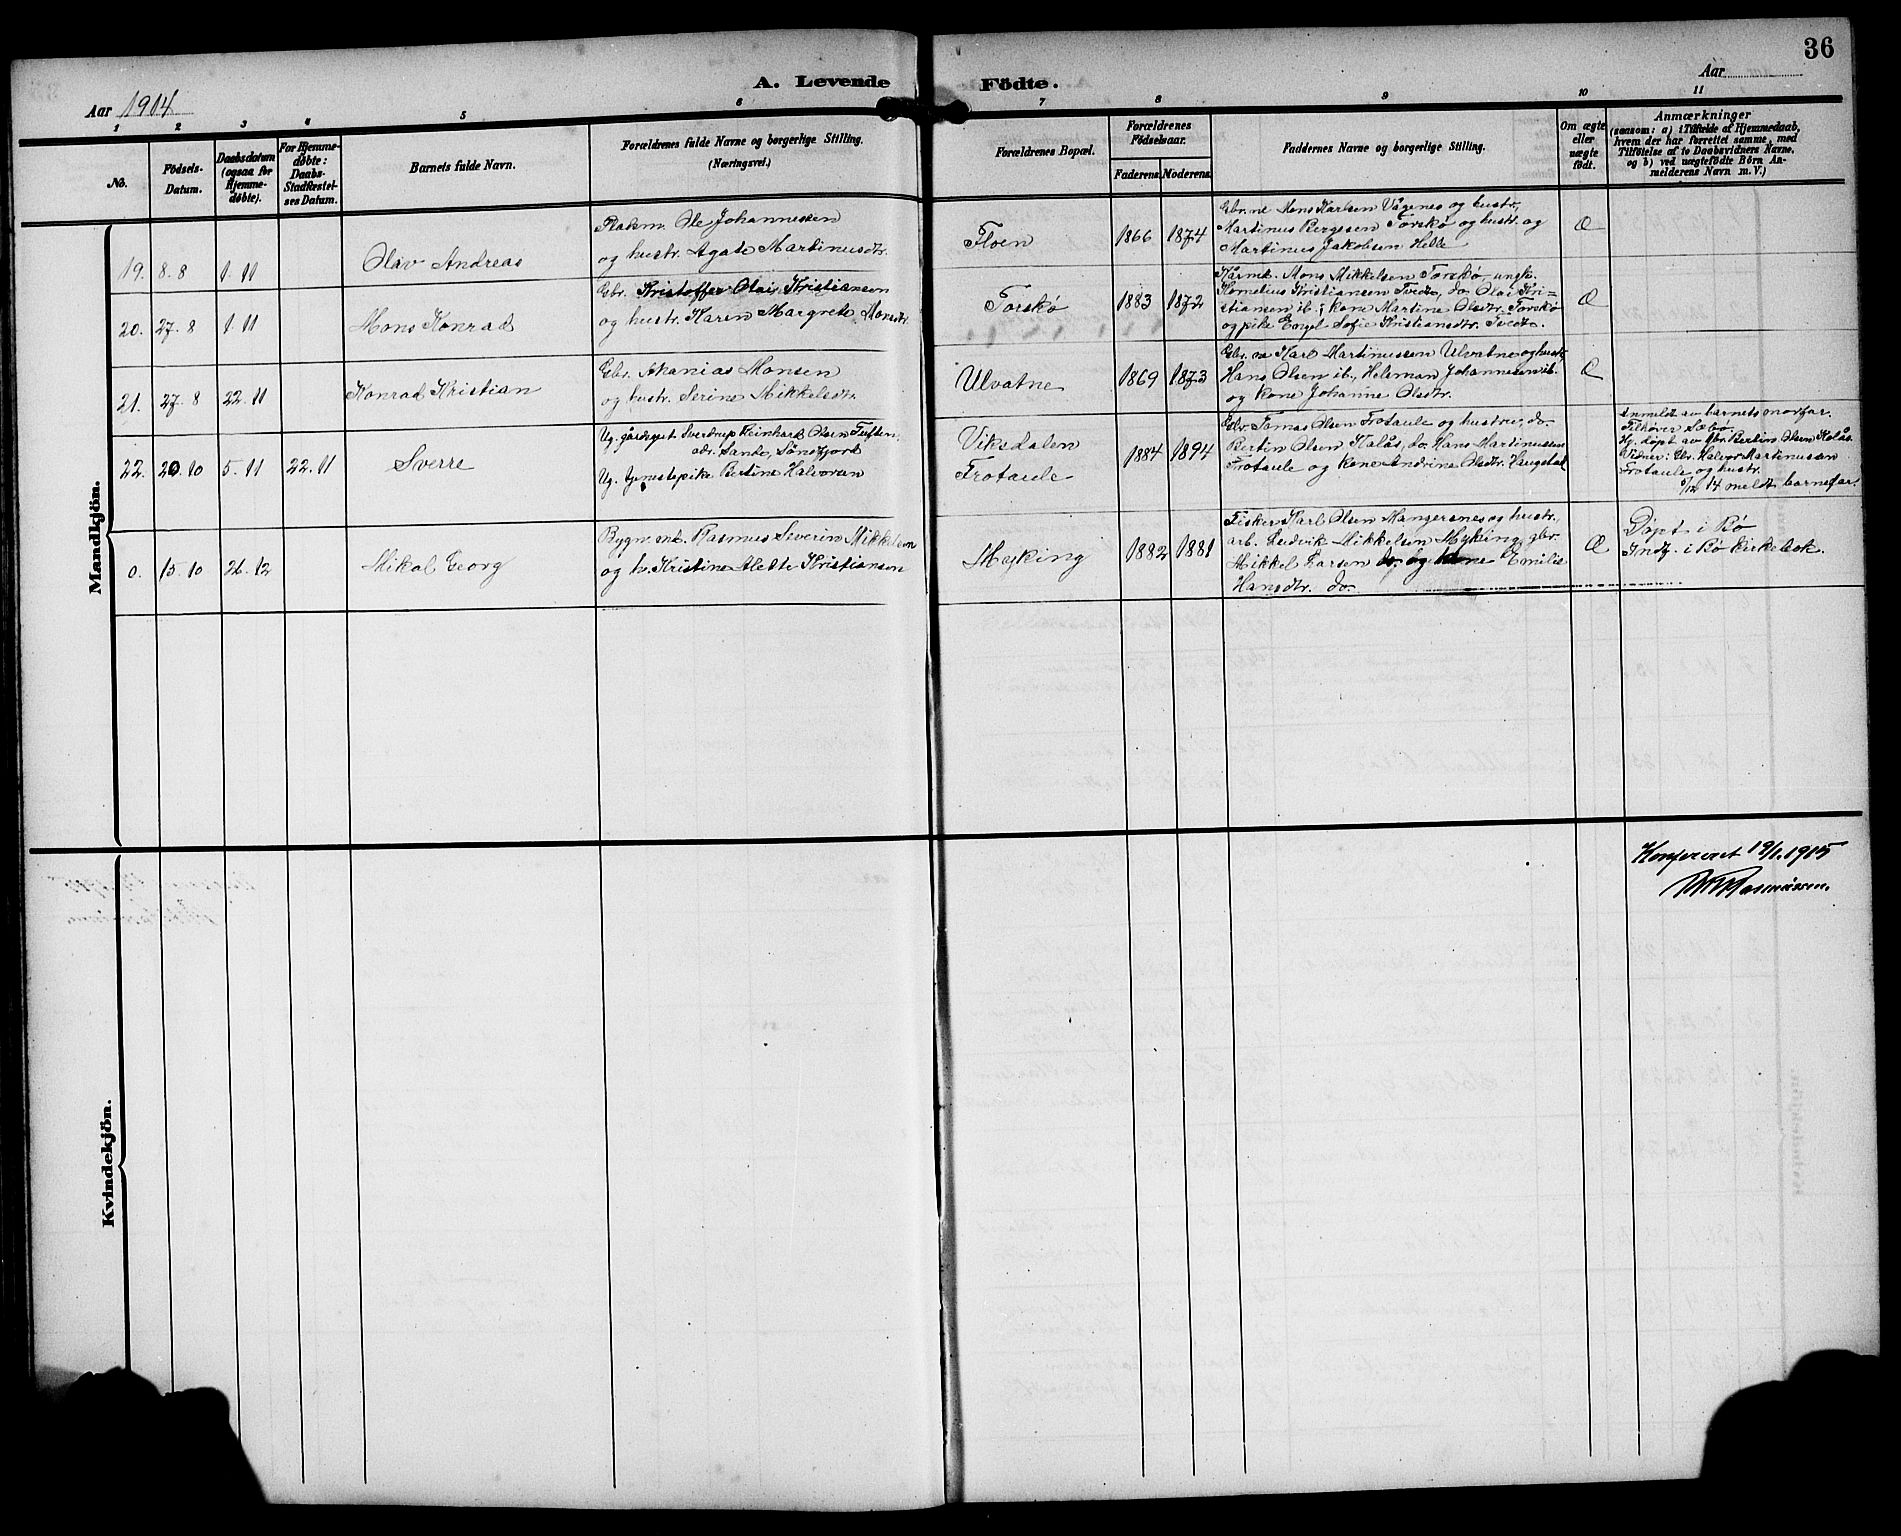 36
A. Levende Födte.
Aar 1914
Aar
1 2 3 4 5 6 7 8 9 10 11
No.
Födsels-
Datum.
Daabsdatum
(ogsaa for
Hjemme-
døbte).
For Hjemme-
døbte:
Daabs-
Stadfæstel-
ses Datum.
Barnets fulde Navn.
Forældrenes fulde Navne og borgerlige Stilling.
(Næringsvei.)
Forældrenes Bopæl.
Forældrenes
Födselsaar.
Faderens. Moderens.
Faddernes Navne og borgerlige Stilling.
Om ægte
eller
uægte
født.
Anmærkninger
(saasom: a) i Tilfælde af Hjemmedaab,
hvem der har forrettet samme, med
Tilföielse af to Daabsvidners Navne,
og b) ved uægtefödte Börn An-
melderens Navn m. V.)
Mandkjön.
19. 8.8 1.11 Olav Andreas
Plasm. Ole Johannessen
og hustr. Agate Martinusdtr.
Floen 1866 1874
Gbr.ne Mons Karlsen Vågenes og hustr.,
Martinus Bergesen Torskø og hustr. og
Martinus Jakobsen Helle
Æ
20. 27.8 1.11 Mons Konrad
Gbr. Kristoffer Olai Kristiansen
og hustr. Karen Margrete Monsdtr.
Torskø 1883 1872
Kårm. Mons Mikkelsen Torskø, ungk.
Kornelius Kristiansen Tvedt, do Olai Kri-
stiansen ib., kone Martine Olsdtr. Torskø
og pike Engel Sofie Kristiansdtr. Tvedt.
Æ
21. 27.8 22.11 Konrad Kristian
Gbr. Akanias Monsen
og hustr. Serine Mikkelsdtr.
Ulvatne 1869 1873
Gbr. ne Karl Martinussen Ulvatne og hustr.
Hans Olsen ib., Heleman Johannesen ib.
og kone Johanne Olsdtr.
Æ
22. 20.10 5.11 22.11 Sverre
Ug. gårdsgut Sverdrup Reinhard Olsen Tuften,
adr. Sande, Søndfjord
Ug. tjenestepike Bertine Halvorsen
Viksdalen
Frotaule
1884 1894
Gbr. Tomas Olsen Frotaule og hustru, do.
Bertin Olsen Kalås, do. Hans Martinussen
Frotaule og kone Andrine Olsdtr. Haugstad
Anmeldt av barnets morfar.
Tilhører Sæbø.
Hj. døpt av gbr. Bertin Olsen Kolås.
Vidner: Gbr. Halvor Martinusen
Frotaule og hustr.
5/12 14 meldt barnefar.
0. 15.10 26.12 Mikal Georg
Bygn. snk. Rasmus Severin Mikkelsen
og h. Kristine Alette Kristiansen
Myking 1882 1881
Fisker Karl Olsen Mangersnes og hustr.,
arb. Ludvik Mikkelsen Myking, gbr.
Mikkel Larsen do. og kone Emilie
Hansdtr. do.
Æ
Døpt i Bø
Indf. i Bø kirkebok.
Konfereret 19/1. 1915
Rasmussen.
Kvindekjön.